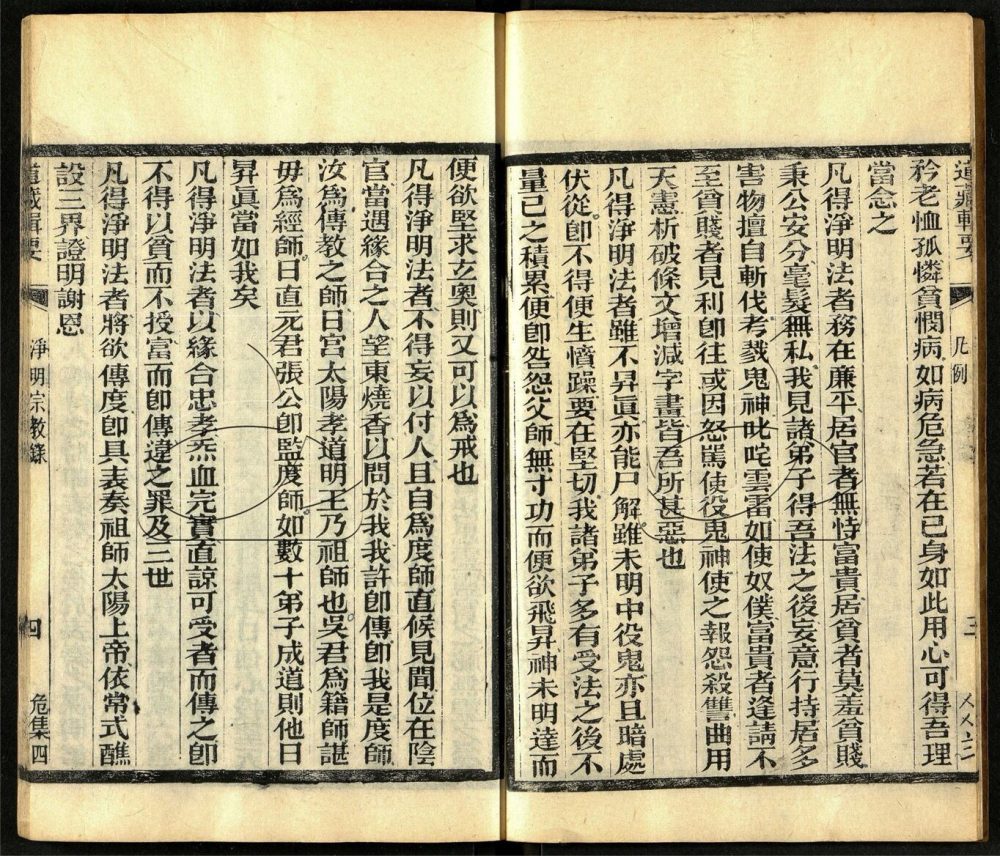 道藏輯要 凡例 三
矜老恤孤憐貧憫病如病危急若在已身如此用心可得吾理
當念之
凡得淨明法者務在廉平居官者無恃富貴居貧者莫羞貧賤
秉公安分毫髮無私我見諸弟子得吾法之後妄意行持居多
害物擅自斬伐考戮鬼神叱咤雲雷如使奴僕富貴者逢請不
至貧賤者見利卽往或因怒罵使役鬼神使之報怨殺讐曲用
天憲析破條文增減字畫皆吾所甚惡也
凡得淨明法者雖不昇眞亦能尸解雖未明中役鬼亦且暗處
伏從卽不得便生憤躁要在堅切我諸弟子多有受法之後不
量已之積累便卽咎怨父師無寸功而便欲飛昇神未明達而
便欲堅求玄奧則又可以爲戒也
凡得淨明法者不得妄以付人且自爲度師直候見聞位在陰
官當遇緣合之人望東燒香以問於我我許卽傳卽我是度師
汝爲傳教之師日宮太陽孝道明王乃祖師也吳君爲籍師諶
母爲經師日直元君張公卽監度師如數十弟子成道則他日
昇眞當如我矣
凡得淨明法者以緣合忠孝炁血完實直諒可受者而傳之卽
不得以貧而不授富而卽傳違之罪及三世
凡得淨明法者將欲傳度卽具表奏祖師太陽上帝依常式醮
設三界證明謝恩
道藏輯要 淨明宗教錄 四 危集四